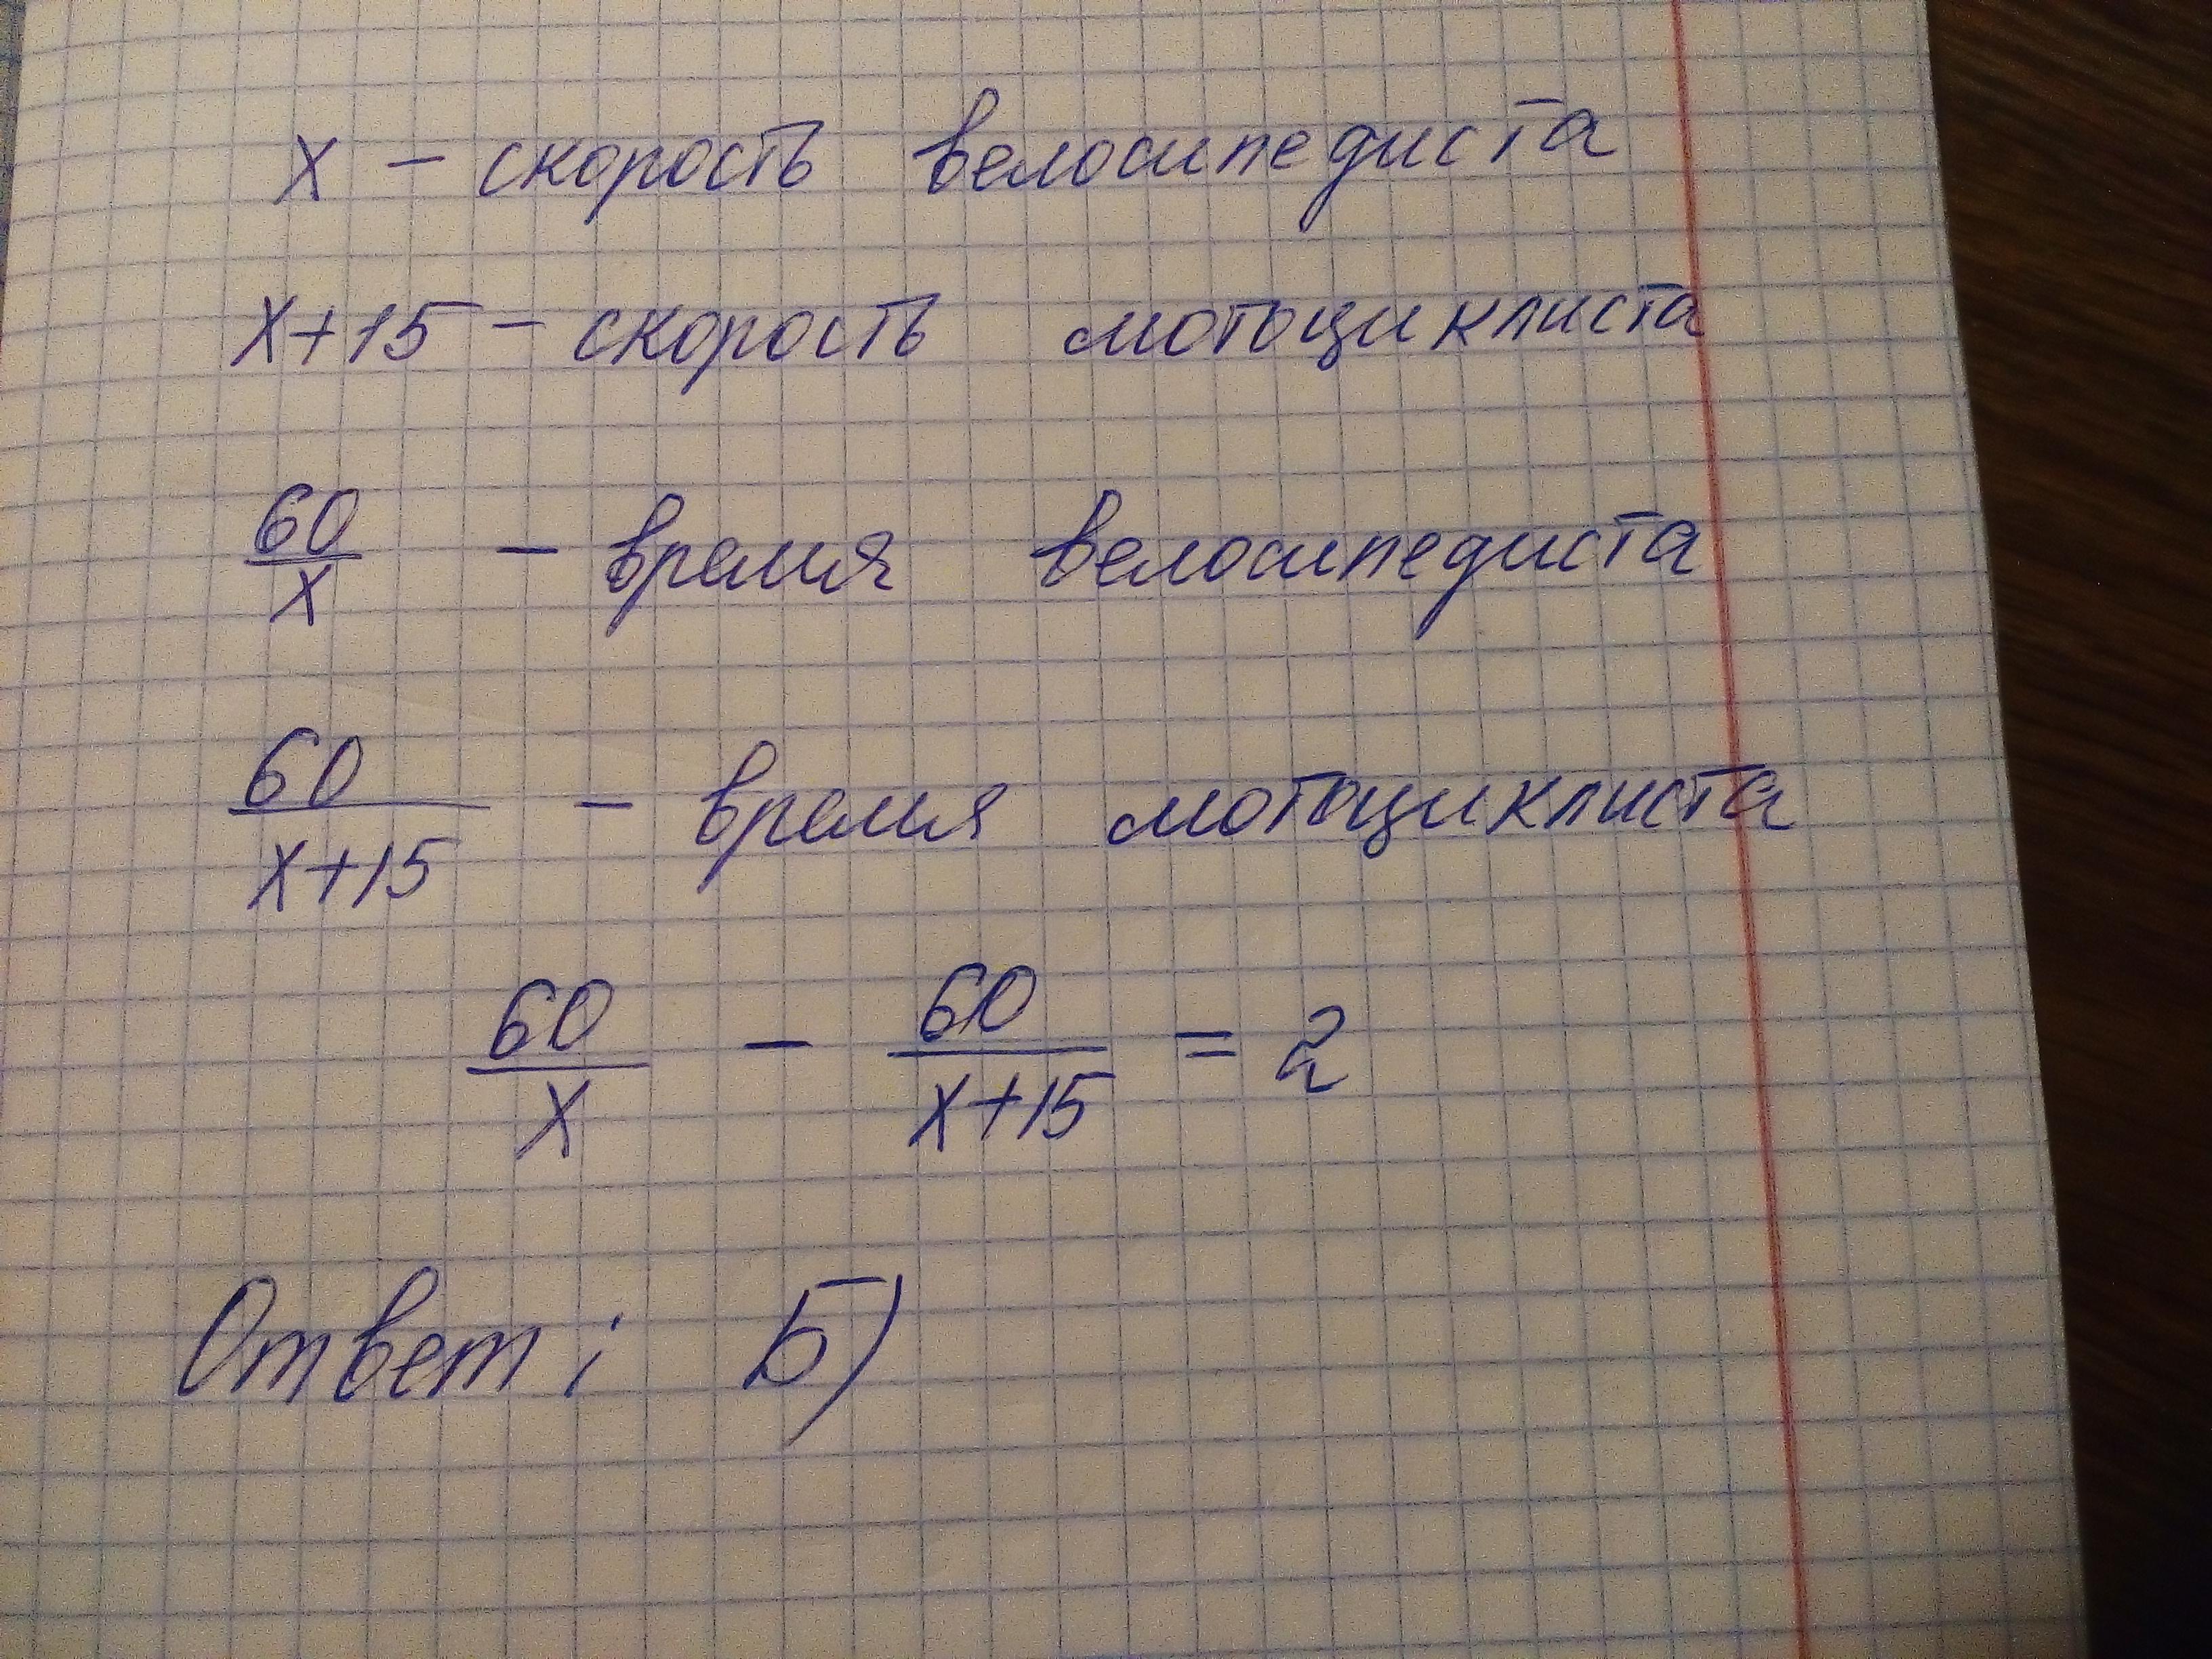 x – скорость велосипедиста
x+15 – скорость мотоциклиста
60/x – время велосипедиста
60/(x+15) – время мотоциклиста
60/x – 60/(x+15) = 2
Ответ: Б)